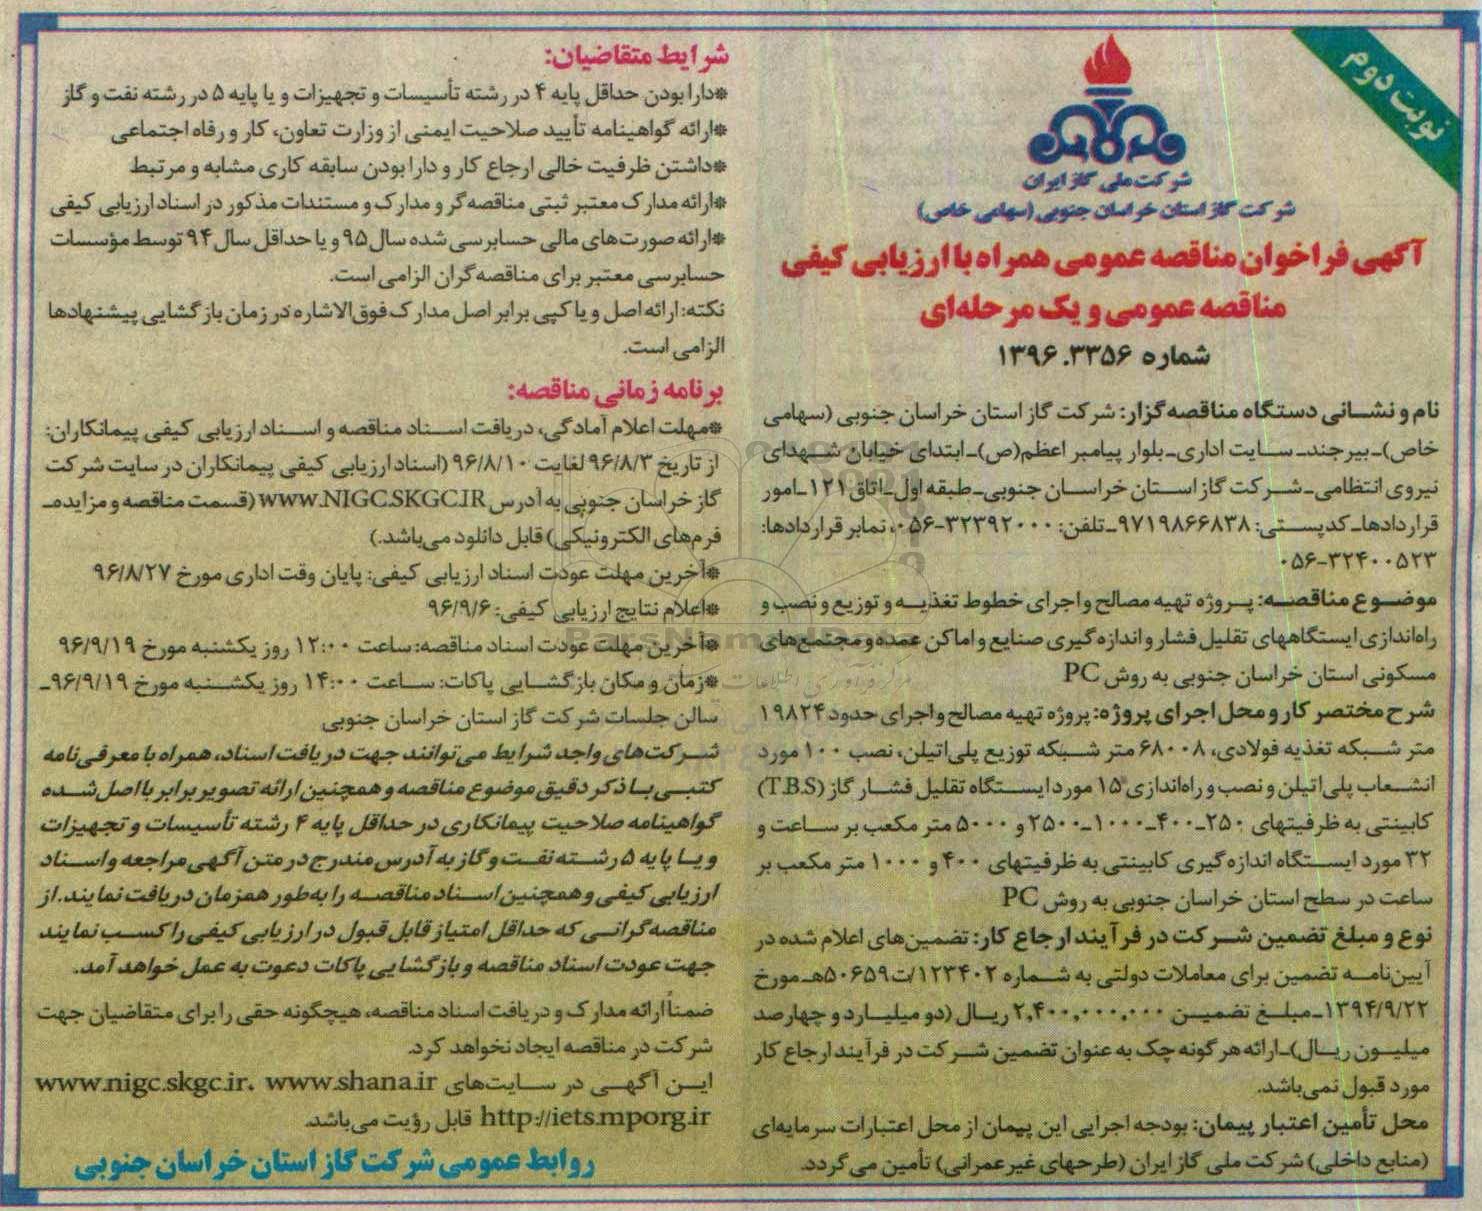 نوبت دوم
شرکت ملی گاز ایران
شرکت گاز استان خراسان جنوبی (سهامی خاص)
آگهی فراخوان مناقصه عمومی همراه با ارزیابی کیفی
مناقصه عمومی و یک مرحله‌ای
شماره ۱۳۹۶.۳۳۵۶
نام و نشانی دستگاه مناقصه‌گزار: شرکت گاز استان خراسان جنوبی (سهامی
خاص)ـ بیرجندـ سایت اداری‌ـ بلوار پیامبر اعظم(ص)ـ ابتدای خیابان شهدای
نیروی انتظامی‌ـ شرکت گاز استان خراسان جنوبی‌ـ طبقه اول‌ـ اتاق ۱۲۱ـ امور
قراردادهاـ کدپستی: ۹۷۱۹۸۶۶۸۳۸ـ تلفن: ۳۲۳۹۲۰۰۰-۰۵۶، نمابر قراردادها:
۳۲۴۰۰۵۲۳-۰۵۶
موضوع مناقصه: پروژه تهیه مصالح و اجرای خطوط تغذیه و توزیع و نصب و
راه‌اندازی ایستگاههای تقلیل فشار و اندازه‌گیری صنایع و اماکن عمده و مجتمع‌های
مسکونی استان خراسان جنوبی به روش PC
شرح مختصر کار و محل اجرای پروژه: پروژه تهیه مصالح و اجرای حدود ۱۹۸۲۴
متر شبکه تغذیه فولادی، ۶۸۰۰۸ متر شبکه توزیع پلی‌اتیلن، نصب ۱۰۰ مورد
انشعاب پلی‌اتیلن و نصب و راه‌اندازی ۱۵ مورد ایستگاه تقلیل فشار گاز (T.B.S)
کابینتی به ظرفیتهای ۲۵۰ـ۴۰۰ـ۱۰۰۰ـ۲۵۰۰ و ۵۰۰۰ متر مکعب بر ساعت و
۳۲ مورد ایستگاه اندازه‌گیری کابینتی به ظرفیتهای ۴۰۰ و ۱۰۰۰ متر مکعب بر
ساعت در سطح استان خراسان جنوبی به روش PC
نوع و مبلغ تضمین شرکت در فرآیند ارجاع کار: تضمین‌های اعلام شده در
آیین‌نامه تضمین برای معاملات دولتی به شماره ۱۲۳۴۰۲/ت۵۰۶۵۹هـ مورخ
۱۳۹۴/۹/۲۲ـ مبلغ تضمین ۲,۴۰۰,۰۰۰,۰۰۰ ریال (دو میلیارد و چهارصد
میلیون ریال)ـ ارائه هرگونه چک به عنوان تضمین شرکت در فرآیند ارجاع کار
مورد قبول نمی‌باشد.
محل تأمین اعتبار پیمان: بودجه اجرایی این پیمان از محل اعتبارات سرمایه‌ای
(منابع داخلی) شرکت ملی گاز ایران (طرحهای غیرعمرانی) تأمین می‌گردد.
شرایط متقاضیان:
*دارا بودن حداقل پایه ۴ در رشته تأسیسات و تجهیزات و یا پایه ۵ در رشته نفت و گاز
*ارائه گواهینامه تأیید صلاحیت ایمنی از وزارت تعاون، کار و رفاه اجتماعی
*داشتن ظرفیت خالی ارجاع کار و دارا بودن سابقه کاری مشابه و مرتبط
*ارائه مدارک معتبر ثبتی مناقصه‌گر و مدارک و مستندات مذکور در اسناد ارزیابی کیفی
*ارائه صورت‌های مالی حسابرسی شده سال ۹۵ و یا حداقل سال ۹۴ توسط مؤسسات
حسابرسی معتبر برای مناقصه‌گران الزامی است.
نکته: ارائه اصل و یا کپی برابر اصل مدارک فوق‌الاشاره در زمان بازگشایی پیشنهادها
الزامی است.
برنامه زمانی مناقصه:
*مهلت اعلام آمادگی، دریافت اسناد مناقصه و اسناد ارزیابی کیفی پیمانکاران:
از تاریخ ۹۶/۸/۳ لغایت ۹۶/۸/۱۰ (اسناد ارزیابی کیفی پیمانکاران در سایت شرکت
گاز خراسان جنوبی به آدرس WWW.NIGC.SKGC.IR (قسمت مناقصه و مزایده‌ـ
فرم‌های الکترونیکی) قابل دانلود می‌باشد.)
*آخرین مهلت عودت اسناد ارزیابی کیفی: پایان وقت اداری مورخ ۹۶/۸/۲۷
*اعلام نتایج ارزیابی کیفی: ۹۶/۹/۶
*آخرین مهلت عودت اسناد مناقصه: ساعت ۱۲:۰۰ روز یکشنبه مورخ ۹۶/۹/۱۹
*زمان و مکان بازگشایی پاکات: ساعت ۱۴:۰۰ روز یکشنبه مورخ ۹۶/۹/۱۹ـ
سالن جلسات شرکت گاز استان خراسان جنوبی
شرکت‌های واجد شرایط می‌توانند جهت دریافت اسناد، همراه با معرفی‌نامه
کتبی با ذکر دقیق موضوع مناقصه و همچنین ارائه تصویر برابر با اصل شده
گواهینامه صلاحیت پیمانکاری در حداقل پایه ۴ رشته تأسیسات و تجهیزات
و یا پایه ۵ رشته نفت و گاز به آدرس مندرج در متن آگهی مراجعه و اسناد
ارزیابی کیفی و همچنین اسناد مناقصه را به‌طور همزمان دریافت نمایند. از
مناقصه‌گرانی که حداقل امتیاز قابل قبول در ارزیابی کیفی را کسب نمایند
جهت عودت اسناد مناقصه و بازگشایی پاکات دعوت به عمل خواهد آمد.
ضمناً ارائه مدارک و دریافت اسناد مناقصه، هیچگونه حقی را برای متقاضیان جهت
شرکت در مناقصه ایجاد نخواهد کرد.
این آگهی در سایت‌های www.nigc.skgc.ir، www.shana.ir
http://iets.mporg.ir قابل رؤیت می‌باشد.
روابط عمومی شرکت گاز استان خراسان جنوبی